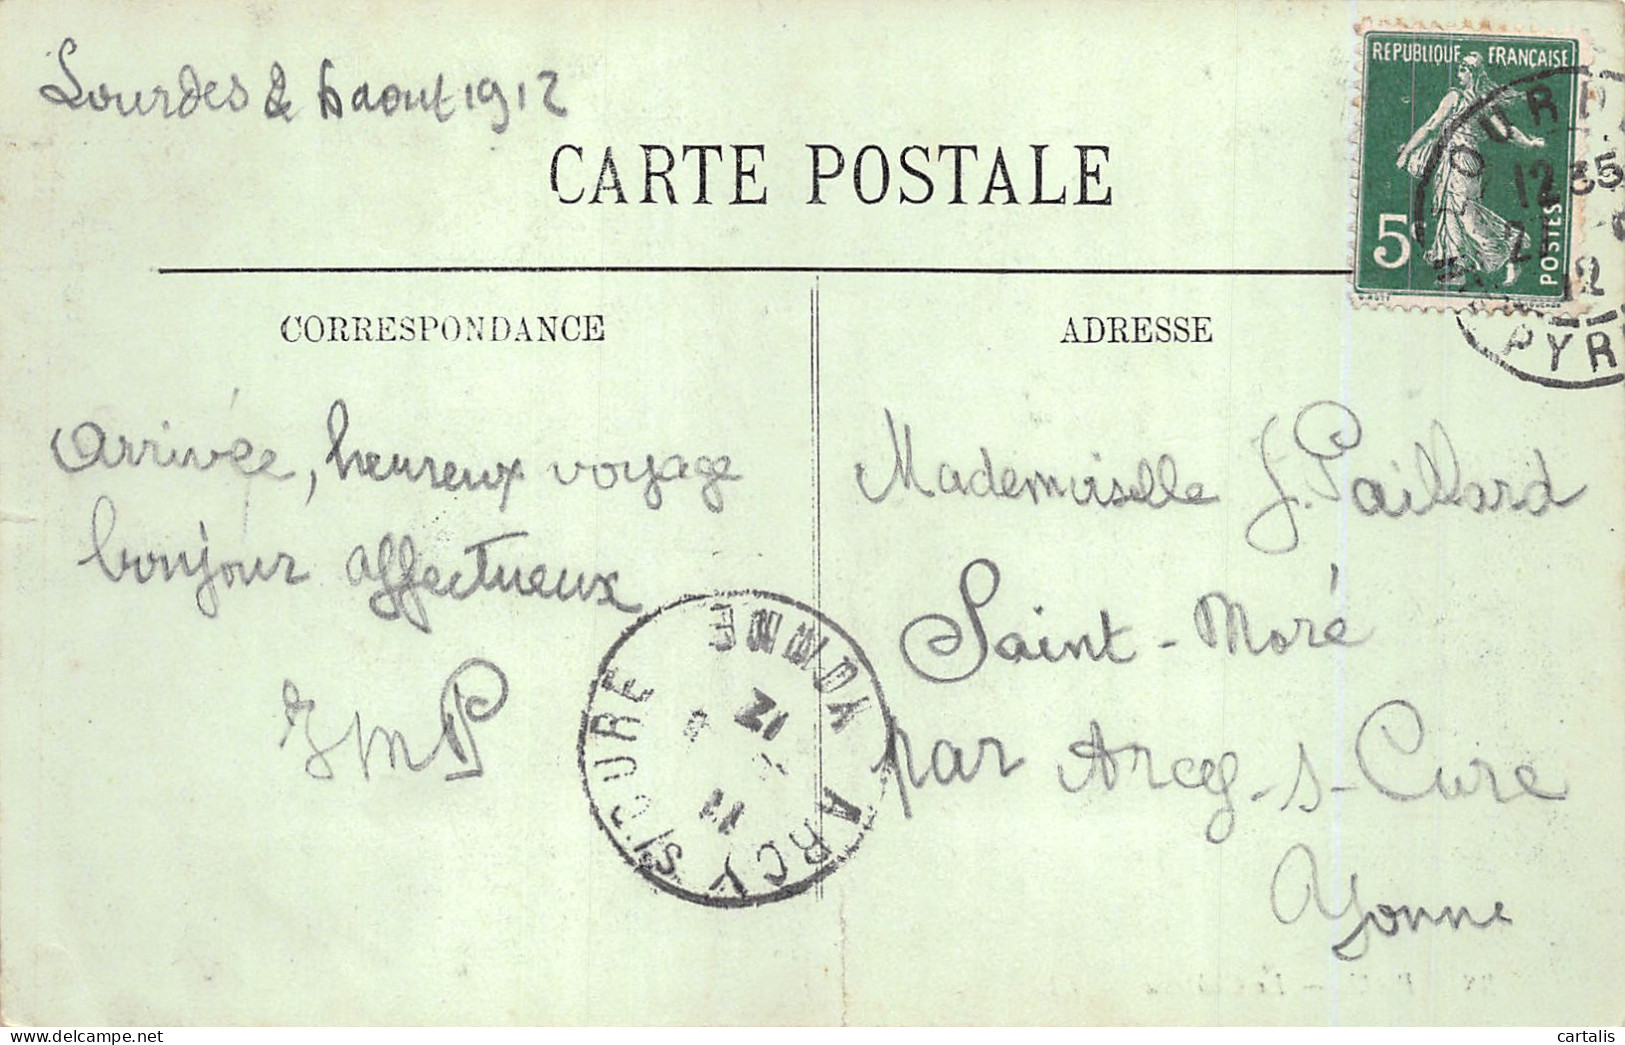 Lourdes 2 6 aout 1912
REPUBLIQUE FRANÇAISE
5c
POSTES
CARTE POSTALE
CORRESPONDANCE
ADRESSE
12 35
2
12
PYR
arrivée, heureux voyage
bonjour affectueux
JMP
Mademoiselle J. Paillard
Saint-Moré
par Arcy-s-Cure
Yonne
ARCY S/CURE YONNE
11
12
cartalis